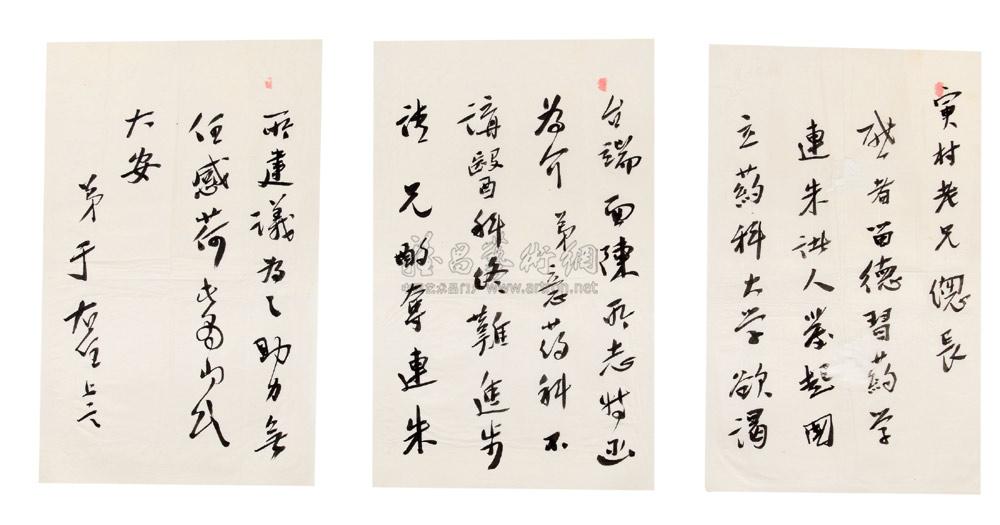 寅村老兄偬長
者留德習药学
連朱諸人發起國
立药科大学欲謁
台端面陳所志特函
为介弟意药科不
講醫科终難進步
請兄酌奪連朱
所建議为之助力無
任感荷
大安
弟于右任上